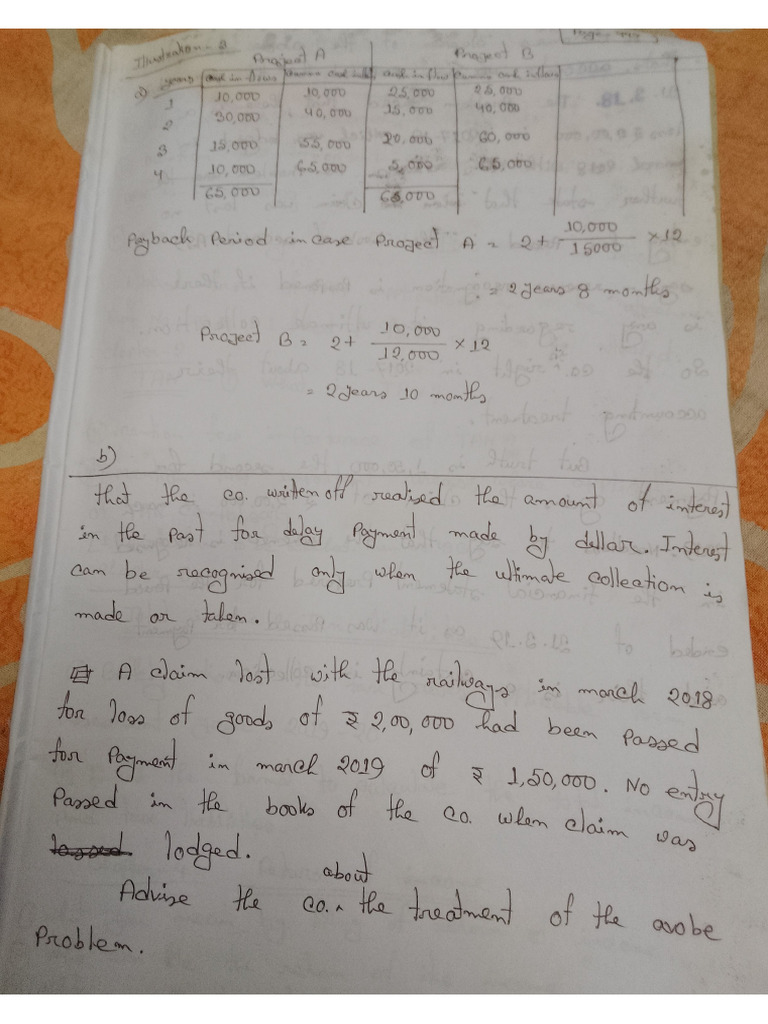 Illustration - 3
Project A Project B
a) years Cash in flows cash cash in flow cash inflows
1 10,000 10,000 25,000 25,000
2 30,000 40,000 15,000 40,000
3 15,000 55,000 20,000 60,000
4 10,000 65,000 5,000 65,000
65,000 65,000
Payback Period in case Project A = 2 + 10,000/15000 × 12
= 2 years 8 months
Project B = 2 + 10,000/12,000 × 12
= 2 years 10 months
b)
that the co. writen off realised the amount of interest
in the past for delay Payment made by dellar. Interest
can be recognised only when the ultimate collection is
made or taken.
A claim lost with the railways in march 2018
for loss of goods of ₹ 2,00,000 had been passed
for Payment in march 2019 of ₹ 1,50,000. No entry
Passed in the books of the co. when claim was
lodged.
about
Advise the co. ^ the treatment of the avobe
Problem.